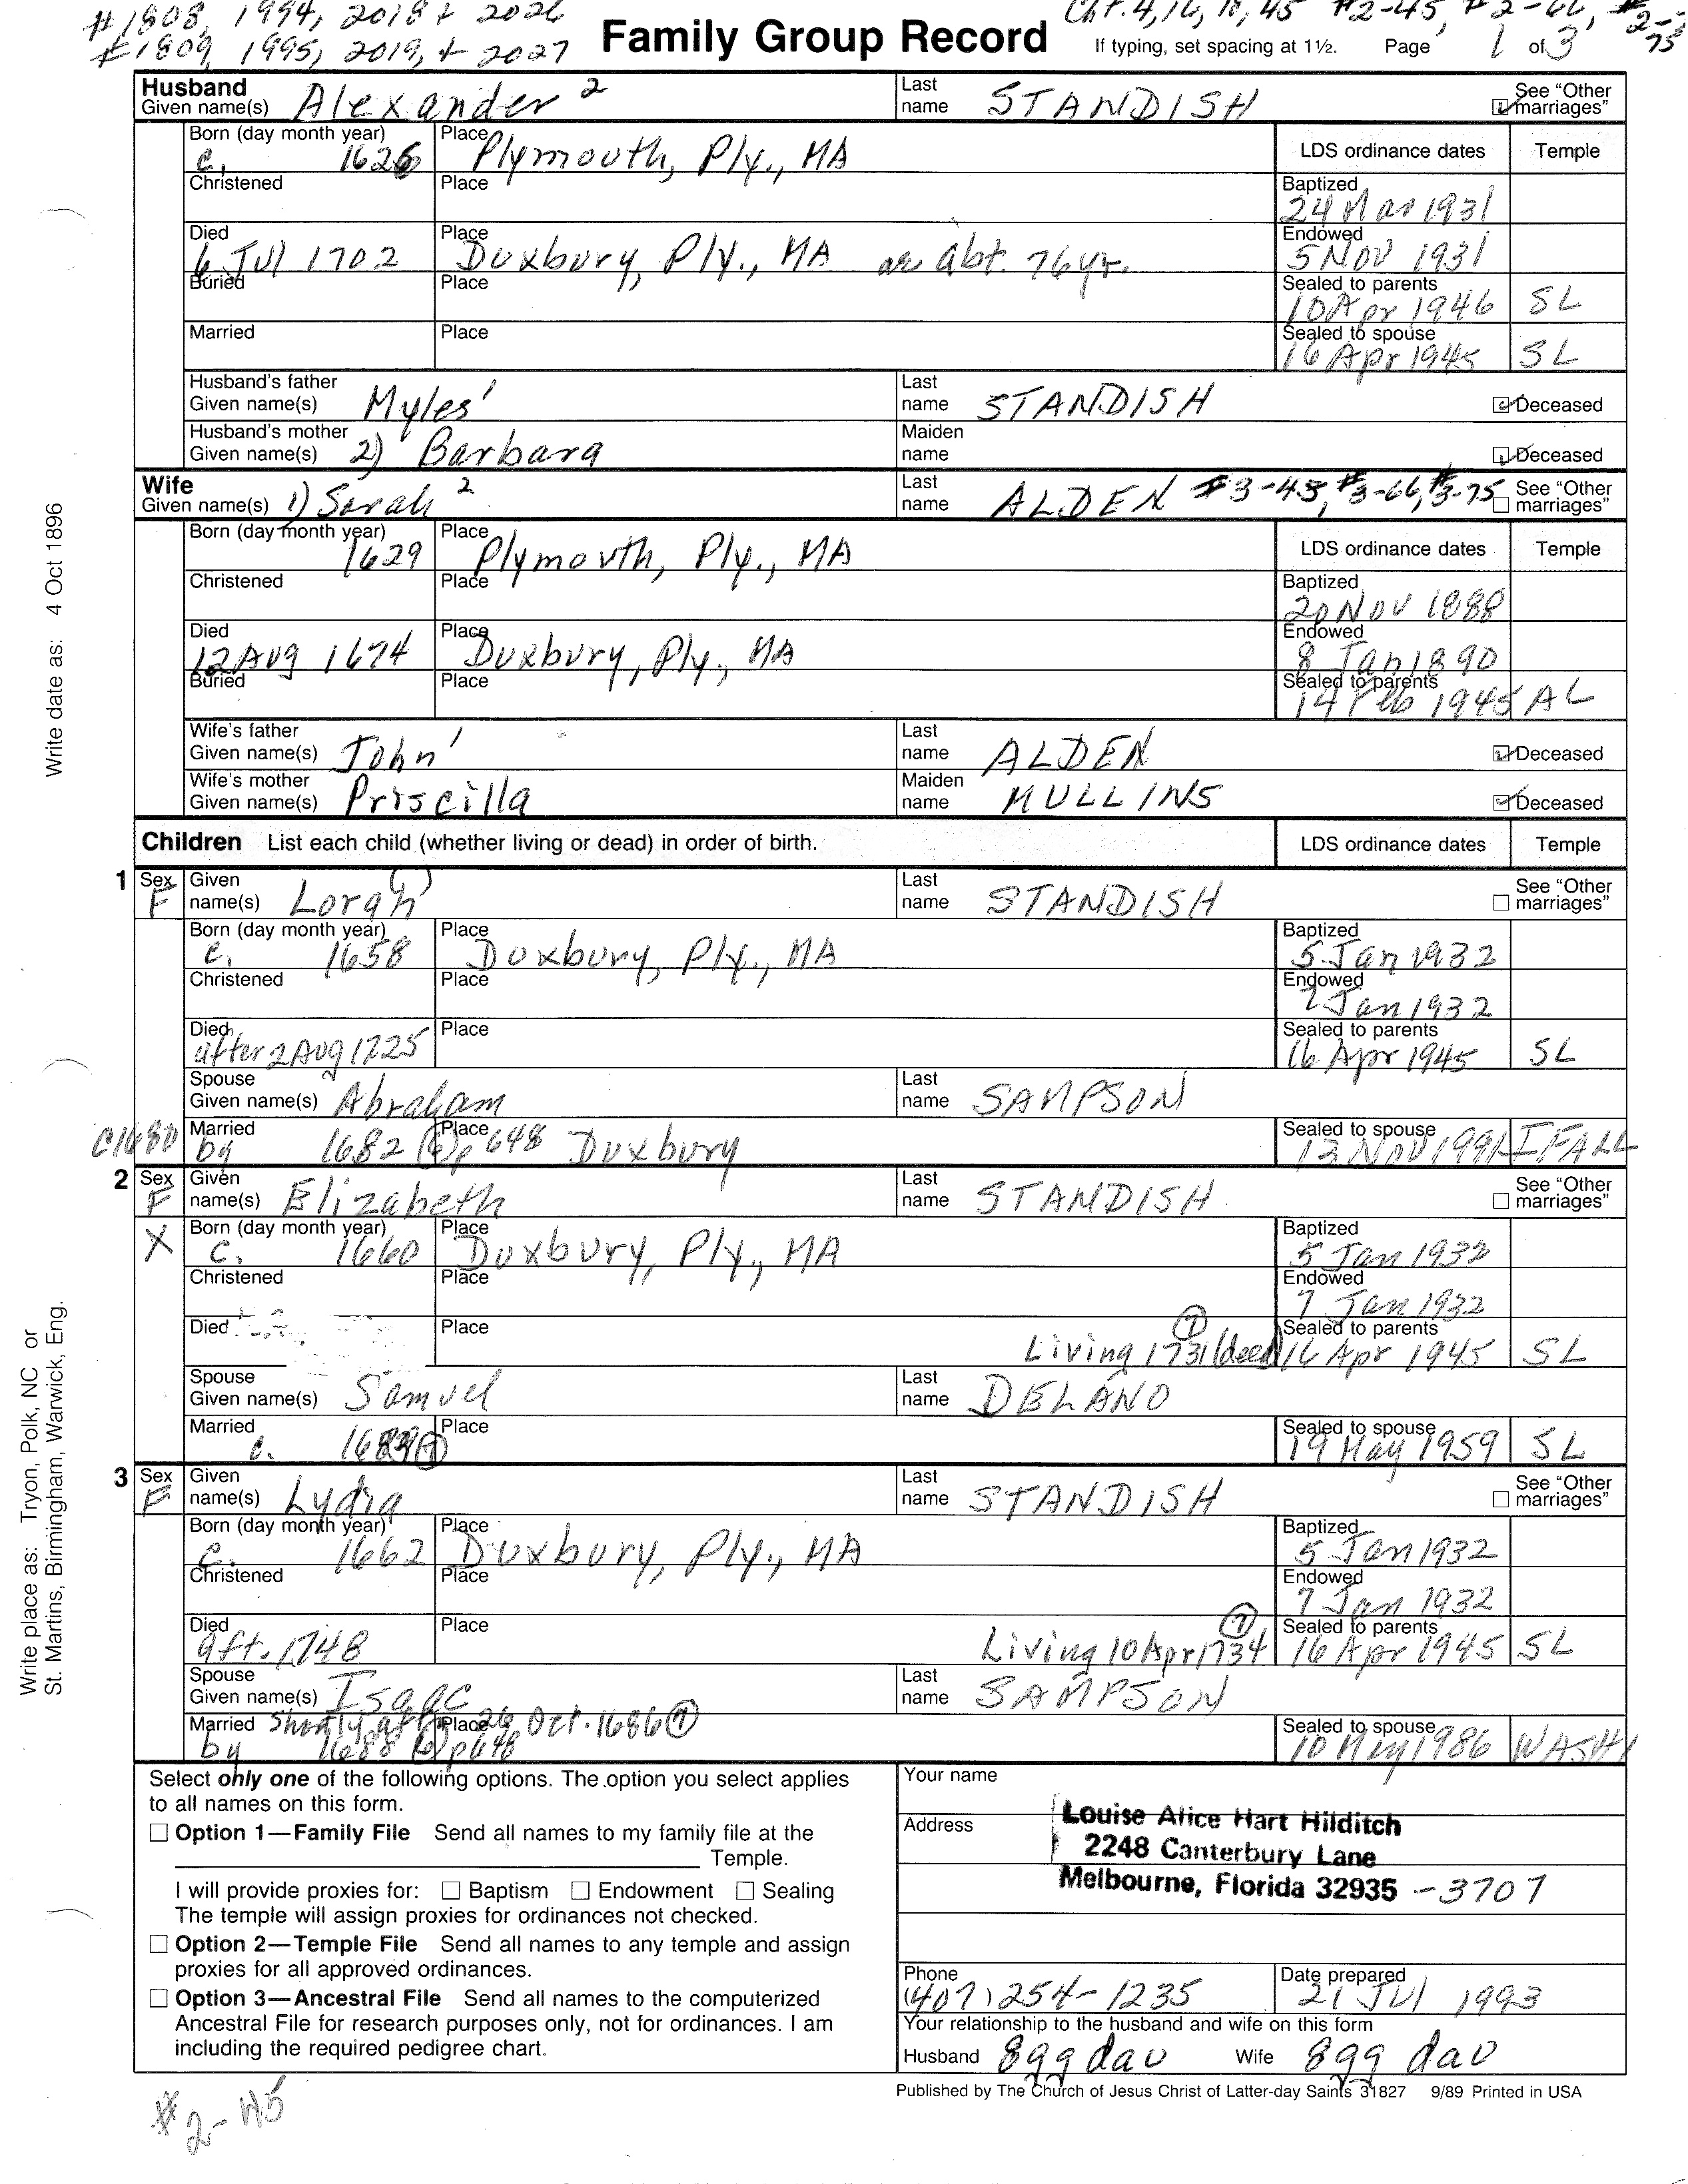 #1808, 1994, 2018 + 2026
#1809, 1995, 2019, + 2027
Family Group Record
If typing, set spacing at 11½. Page 1 of 3
Husband
Given name(s) Alexander 2 Last name STANDISH See “Other marriages”
Born (day month year) c. 1626 Place Plymouth, Ply., MA LDS ordinance dates Temple
Christened Place Baptized 24 Mar 1931
Died 6 Jul 1702 Place Duxbury, Ply., MA ae abt. 76 yr. Endowed 5 NOV 1931
Buried Place Sealed to parents 10 Apr 1946 SL
Married Place Sealed to spouse 16 Apr 1945 SL
Husband's father Given name(s) Myles' Last name STANDISH Deceased
Husband's mother Given name(s) 2) Barbara Maiden name Deceased
Wife
Given name(s) 1) Sarah 2 Last name ALDEN #3-45, #3-66, #3-75 See “Other marriages”
Born (day month year) 1629 Place Plymouth, Ply., MA LDS ordinance dates Temple
Christened Place Baptized 20 NOV 1888
Died 12 Aug 1674 Place Duxbury, Ply., MA Endowed 8 Jan 1890
Buried Place Sealed to parents 14 Feb 1945 AL
Wife's father Given name(s) John' Last name ALDEN Deceased
Wife's mother Given name(s) Priscilla Maiden name MULLINS Deceased
Children List each child (whether living or dead) in order of birth. LDS ordinance dates Temple
1 Sex F Given name(s) Lorah Last name STANDISH See “Other marriages”
Born (day month year) c. 1658 Place Duxbury, Ply., MA Baptized 5 Jan 1932
Christened Place Endowed Jan 1932
Died after 2 Aug 1725 Place Sealed to parents 16 Apr 1945 SL
Spouse Given name(s) Abraham Last name SAMPSON
c1680 Married by 1682 (6) p 648 Place Duxbury Sealed to spouse 13 NOV 1991 IFALL
2 Sex F Given name(s) Elizabeth Last name STANDISH See “Other marriages”
X Born (day month year) c. 1660 Place Duxbury, Ply., MA Baptized 5 Jan 1932
Christened Place Endowed 7 Jan 1932
Died Place Living 1731 (deed) (7) Sealed to parents 16 Apr 1945 SL
Spouse Given name(s) Samuel Last name DELANO
Married c. Place Sealed to spouse 19 May 1959 SL
3 Sex F Given name(s) Lydia Last name STANDISH See “Other marriages”
Born (day month year) c. 1662 Place Duxbury, Ply., MA Baptized 5 Jan 1932
Christened Place Endowed 7 Jan 1932
Died aft. 1748 Place Living 10 Apr 1734 (7) Sealed to parents 16 Apr 1945 SL
Spouse Given name(s) Isaac Last name SAMPSON
Married Shortly aft. Place 26 Oct. 1686 (7)
by 1688 (6) p 648 Sealed to spouse 10 May 1986 WASH
Select only one of the following options. The option you select applies
to all names on this form.
Option 1—Family File Send all names to my family file at the
Temple.
I will provide proxies for: Baptism Endowment Sealing
The temple will assign proxies for ordinances not checked.
Option 2—Temple File Send all names to any temple and assign
proxies for all approved ordinances.
Option 3—Ancestral File Send all names to the computerized
Ancestral File for research purposes only, not for ordinances. I am
including the required pedigree chart.
Your name
Address
Louise Alice Hart Hilditch
2248 Canterbury Lane
Melbourne, Florida 32935 -3707
Phone (407) 254-1235 Date prepared 21 Jul 1993
Your relationship to the husband and wife on this form
Husband 8gg dau Wife 8gg dau
Published by The Church of Jesus Christ of Latter-day Saints 31827 9/89 Printed in USA
#2-45
Write date as: 4 Oct 1896
Write place as: Tryon, Polk, NC or
St. Martins, Birmingham, Warwick, Eng.